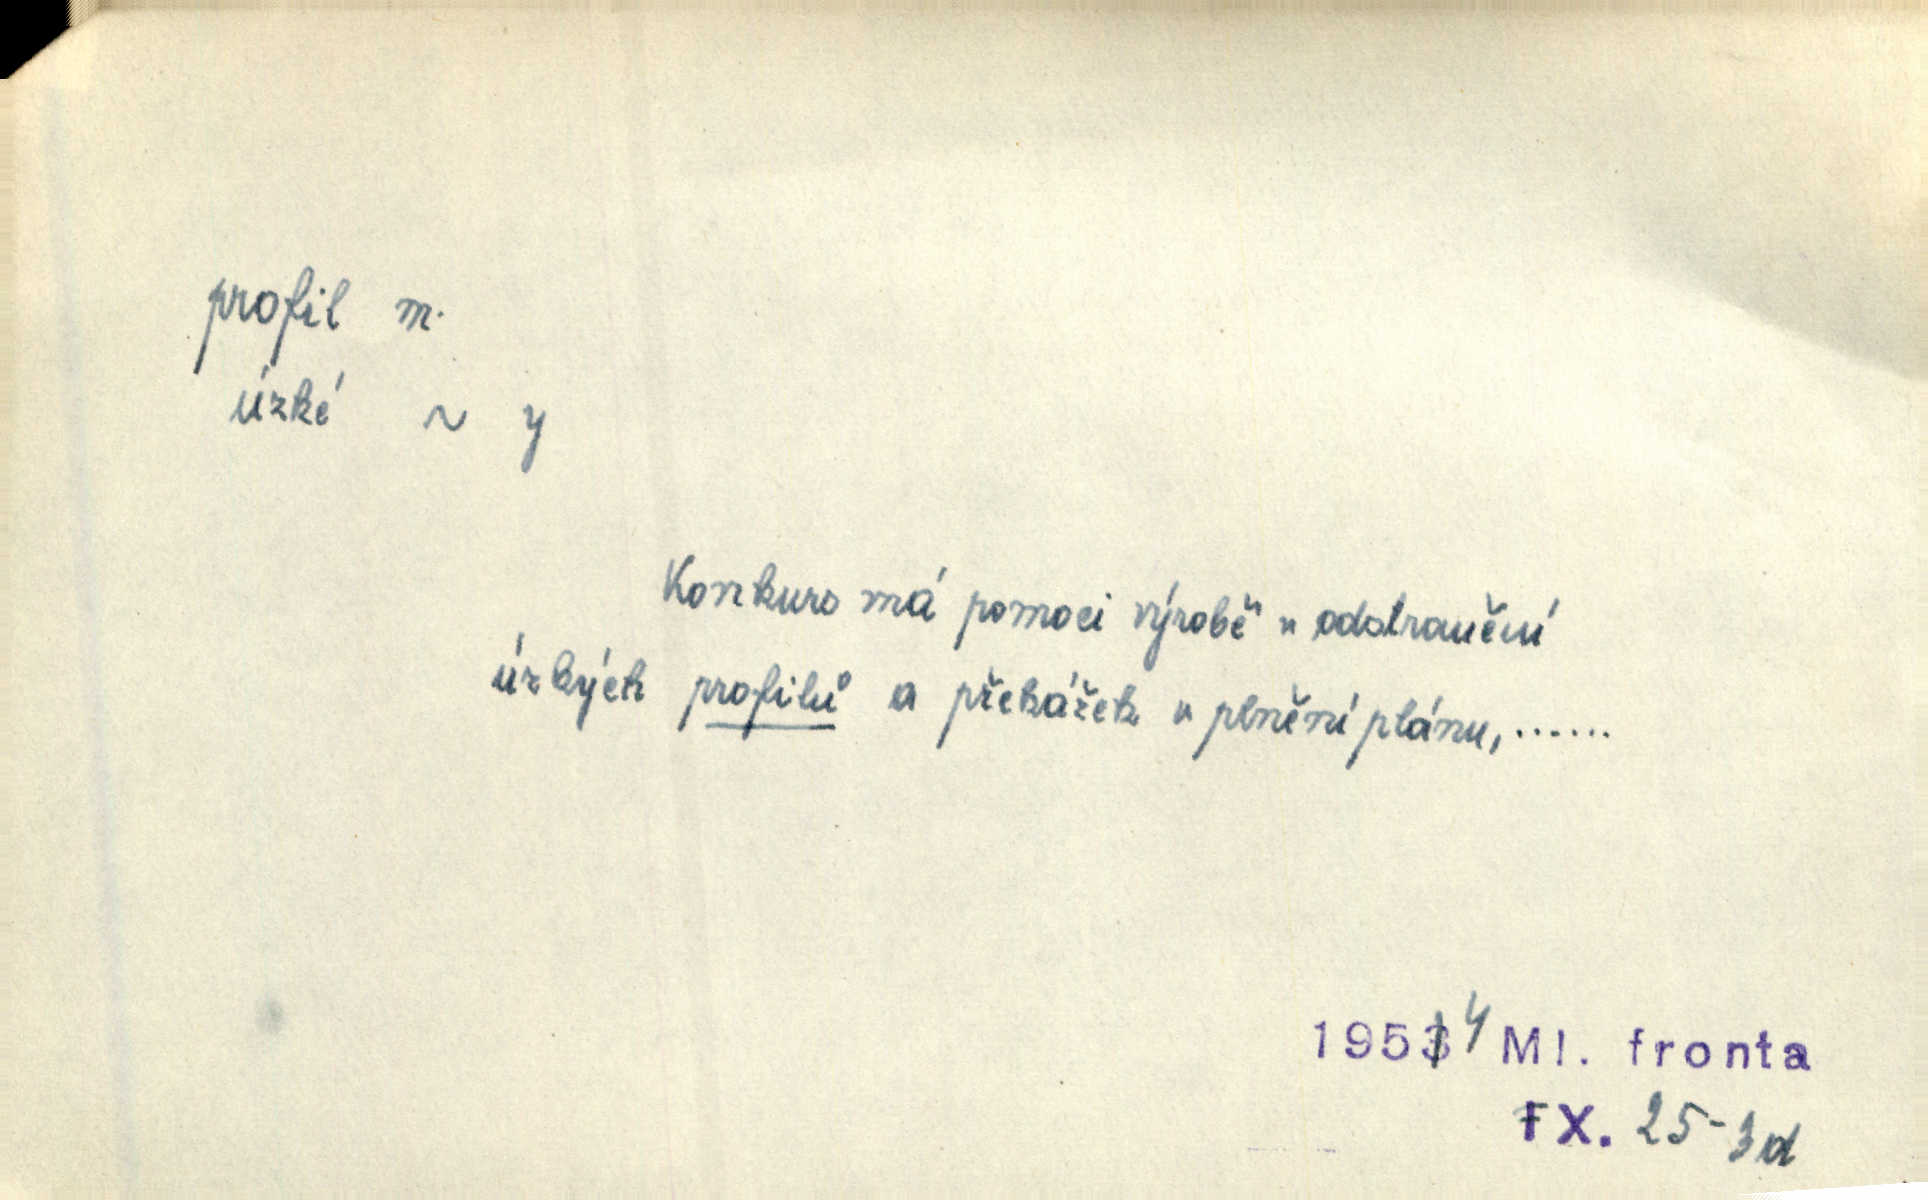 profil m.
úzké ~ y
Konkurs má pomoci výrobě k odstranění
úzkých profilů a překážek v plnění plánu,......
1954 Ml. fronta
X. 25-3d